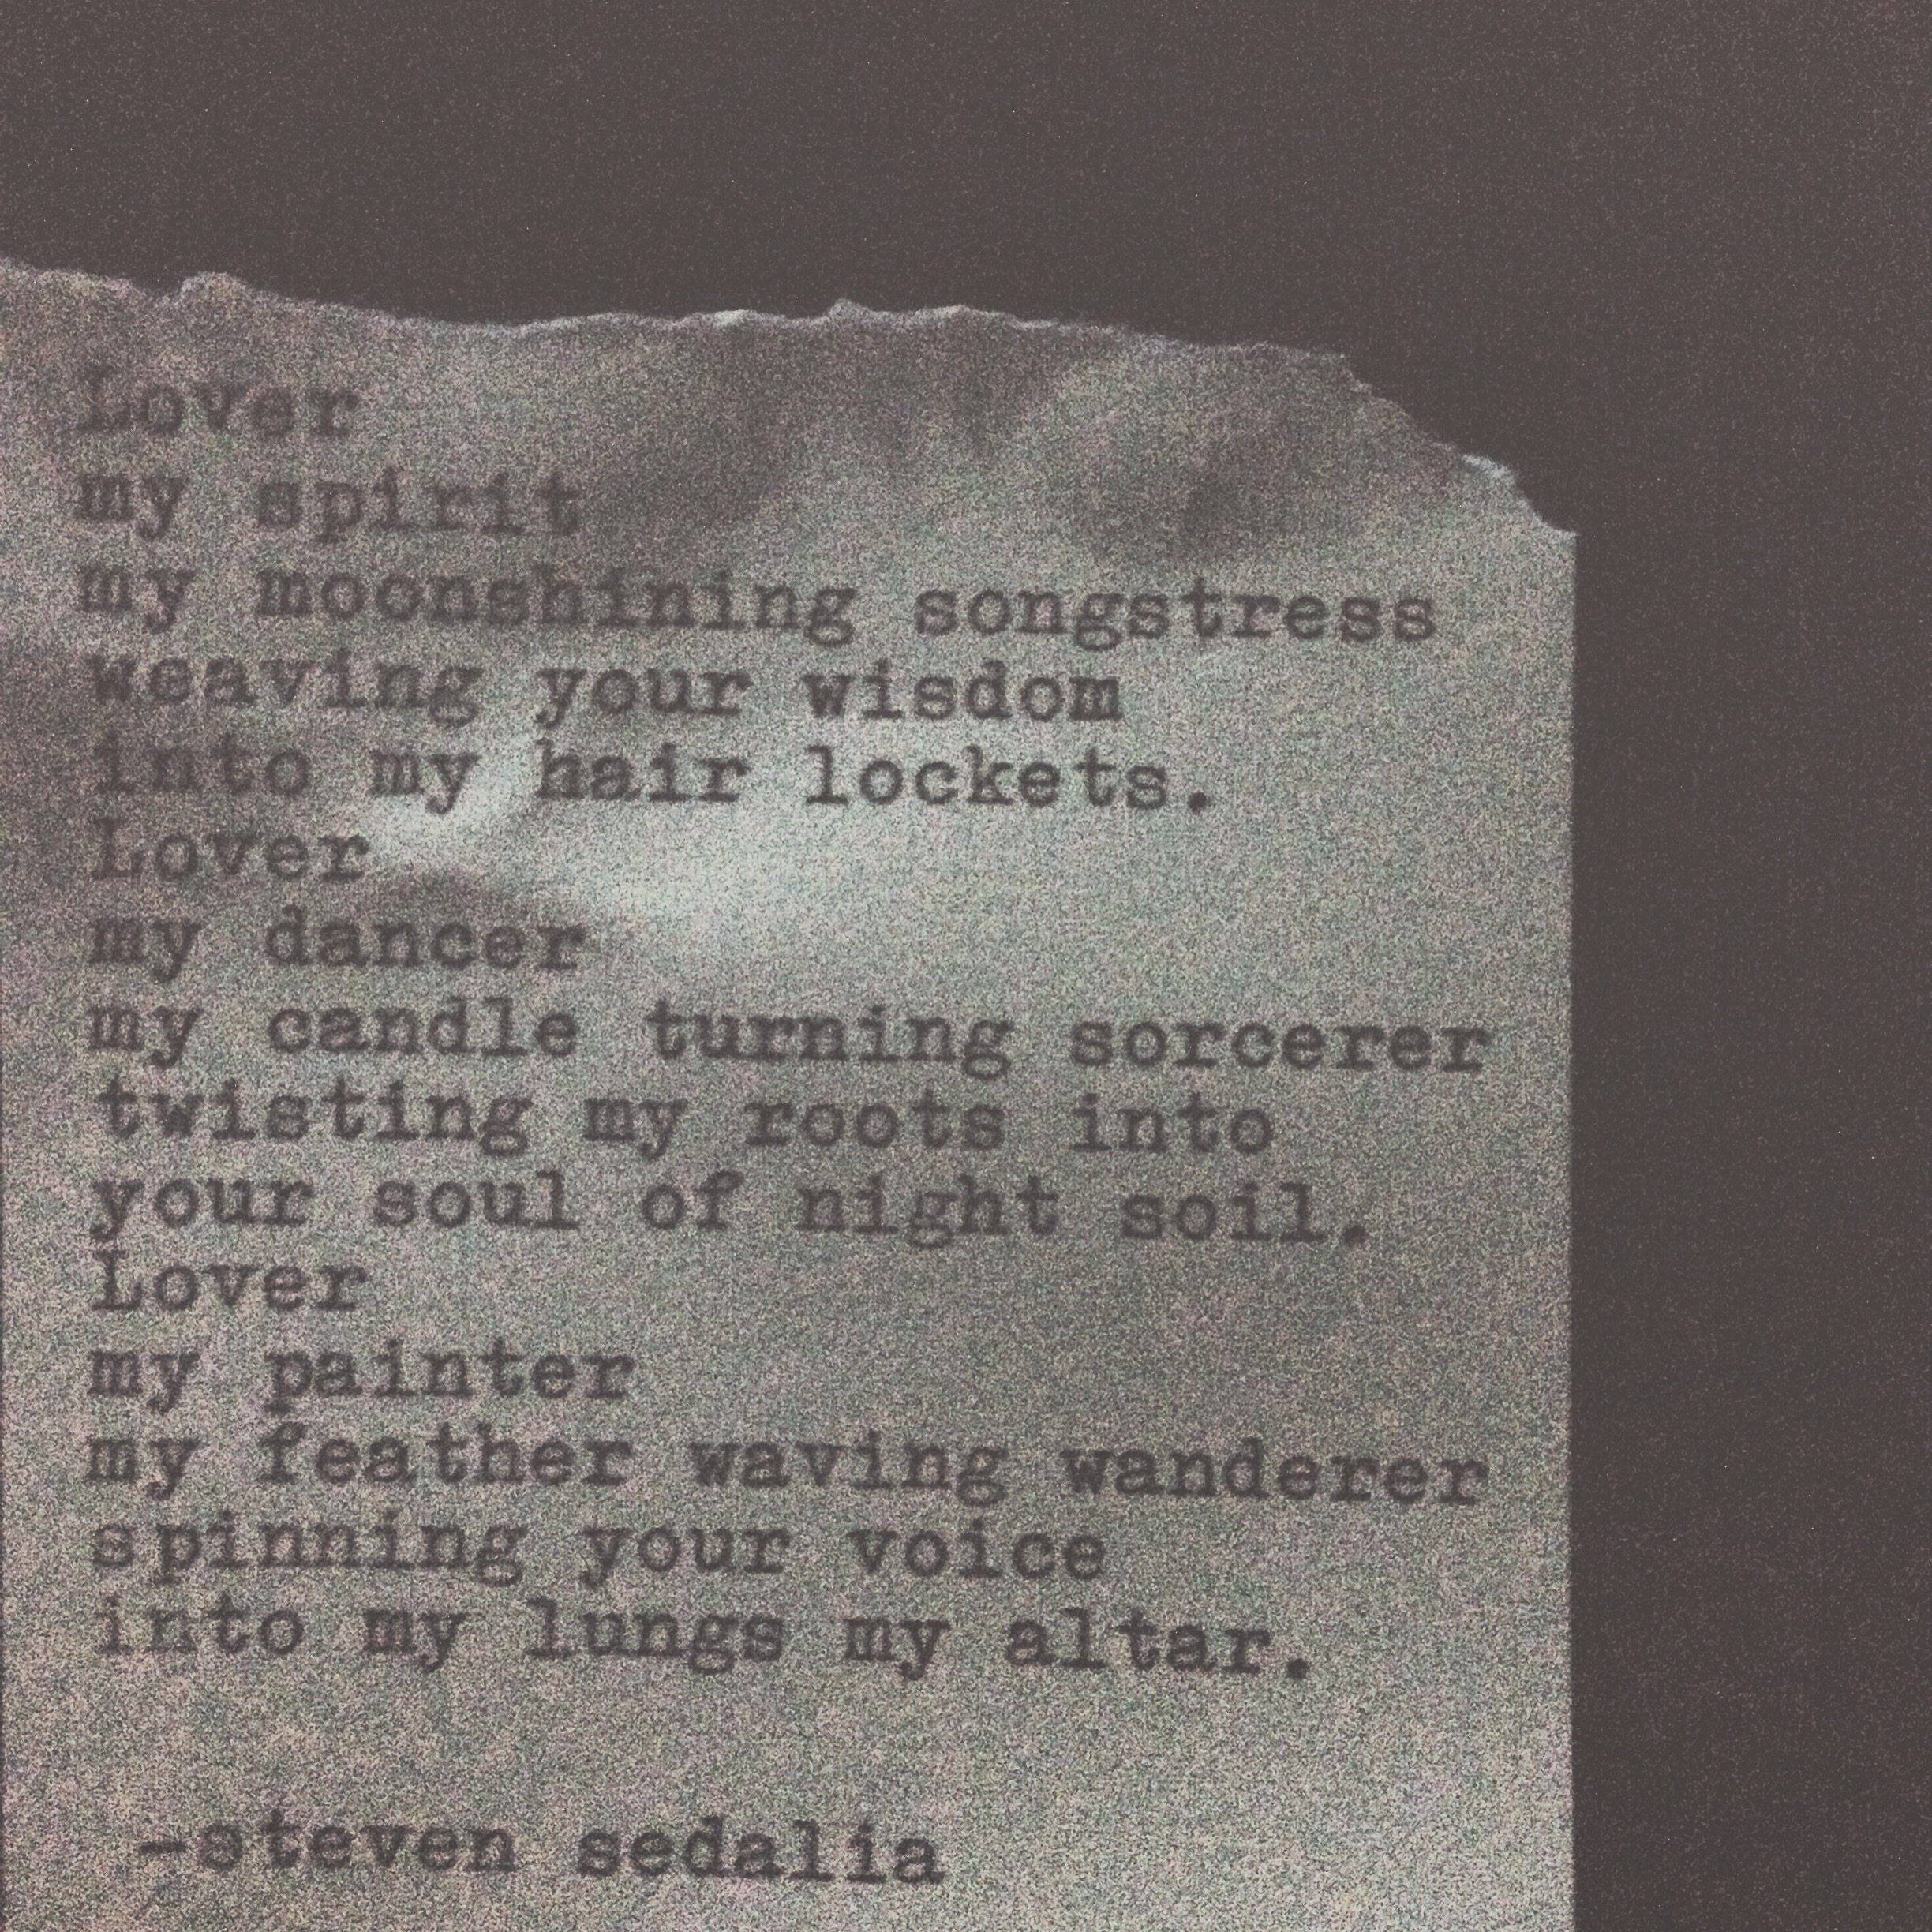 Lover
my spirit
my moonshining songstress
weaving your wisdom
into my hair lockets.
Lover
my dancer
my candle turning sorcerer
twisting my roots into
your soul of night soil.
Lover
my painter
my feather waving wanderer
spinning your voice
into my lungs my altar.
-steven sedalia